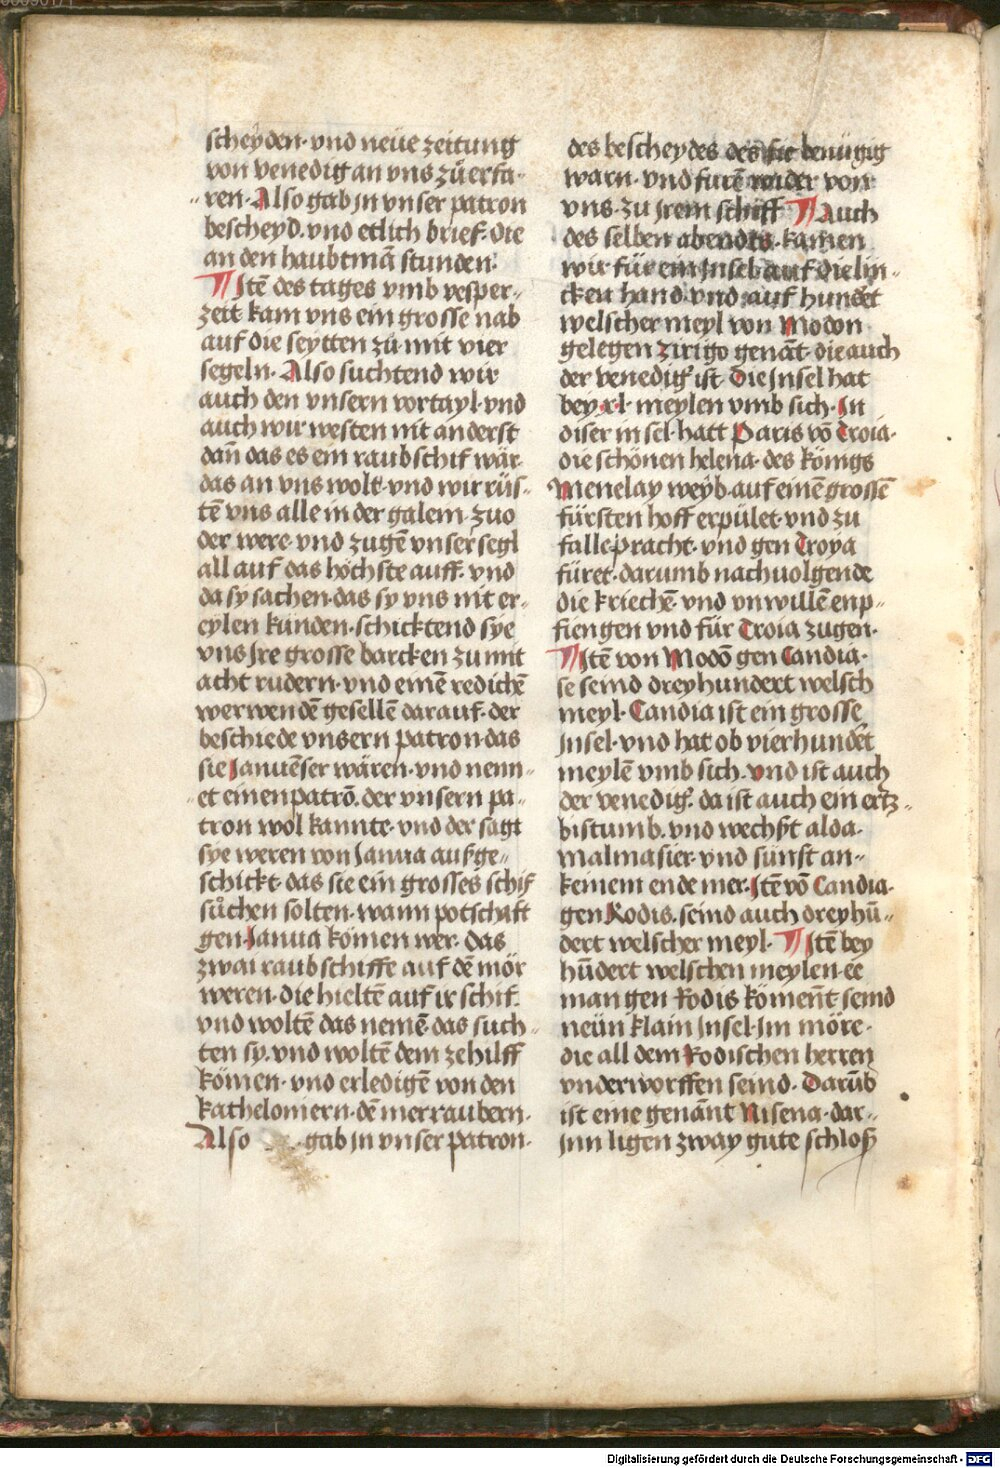 scheyden· vnd neüe zeitung
von venedig an vns zů erfa-
ren· Also gab jn vnser patron
bescheyd· vnd etlich brief· die
an den haubtmā stunden·
¶ Jtē des tages vmb vesper-
zeit kam vns ein grosse nab
auf die seytten zů mit vier
segeln· Also suchtend wir
auch den vnsern vortayl· vnd
auch wir westen nit anderst
dañ das es ein raubschif wär
das an vns wolt· vnd wir rüs-
tē vns alle in der galein zuo
der were· vnd zugē vnser segl
all auf das höchste auff· vnd
da sy sachen· das sy vns nit er-
eylen kunden· schicktend sye
vns Jre grosse barcken zu mit
acht rudern· vnd einē redichē
werwendē gesellē darauf· der
beschiede vnsern patron· das
sie Januēser wären· vnd nenn-
et einen patrō· der vnsern pa-
tron wol kannte· vnd der sagt
sye weren von Janua außge-
schickt· das sie ein grosses schif
sůchen solten· wann potschaft
gen Janua kömen wer· das
zwai raubschiffe auf dē mör
weren· die hieltē auf ir schif·
vnd woltē das nemē· das such-
ten sy· vnd woltē dem ze hilff
kömen· vnd erledigē von den
katheloniern· dē merraubern·
Also · gab jn vnser patron·
des bescheydes des sie benügig
warn· vnd furē wider von
vns· zu jrem schiff ¶ Auch
des selben abendts· kamen
wir für ein Jnsel· auf die lin-
cken hand· vnd auf hundēt
welscher meyl von Modon
gelegen zirigo genāt· die auch
der venedig' ist· die Jnsel hat
bey xl· meylen vmb sich· Jn
diser insel· hatt Paris vō Troia·
die schönen helena· des königs
Menelay weyb· auf einē grossē
fürsten hoff erpület· vnd zu
falle pracht· vnd gen Troya
füret· darumb nachuolgende
die kriechē· vnd vnwillē enp-
fiengen vnd für Troia zugen·
¶ Jtē von Modō gen Candia·
se seind dreyhundert welsch
meyl· Candia ist ein grosse
jnsel· vnd hat ob vierhundēt
meylē vmb sich· vnd ist auch
der venedig'· da ist auch ein ertz-
bistumb· vnd wechßt alda·
malmasier· vnd sünst an-
keinem ende mer· Jtē vō Candia·
gen Rodis· seind auch dreyhū-
dert welscher meyl· ¶ Jtē bey
hūdert welschen meylen· ee
man gen Rodis kömēt· seind
neün klain Jnsel· Jm möre·
die all dem Rodischen herren
vnderworffen seind· Darūb
ist eine genānt Nisena· dar-
jnn ligen zway gute schloß
Digitalisierung gefördert durch die Deutsche Forschungsgemeinschaft - DFG